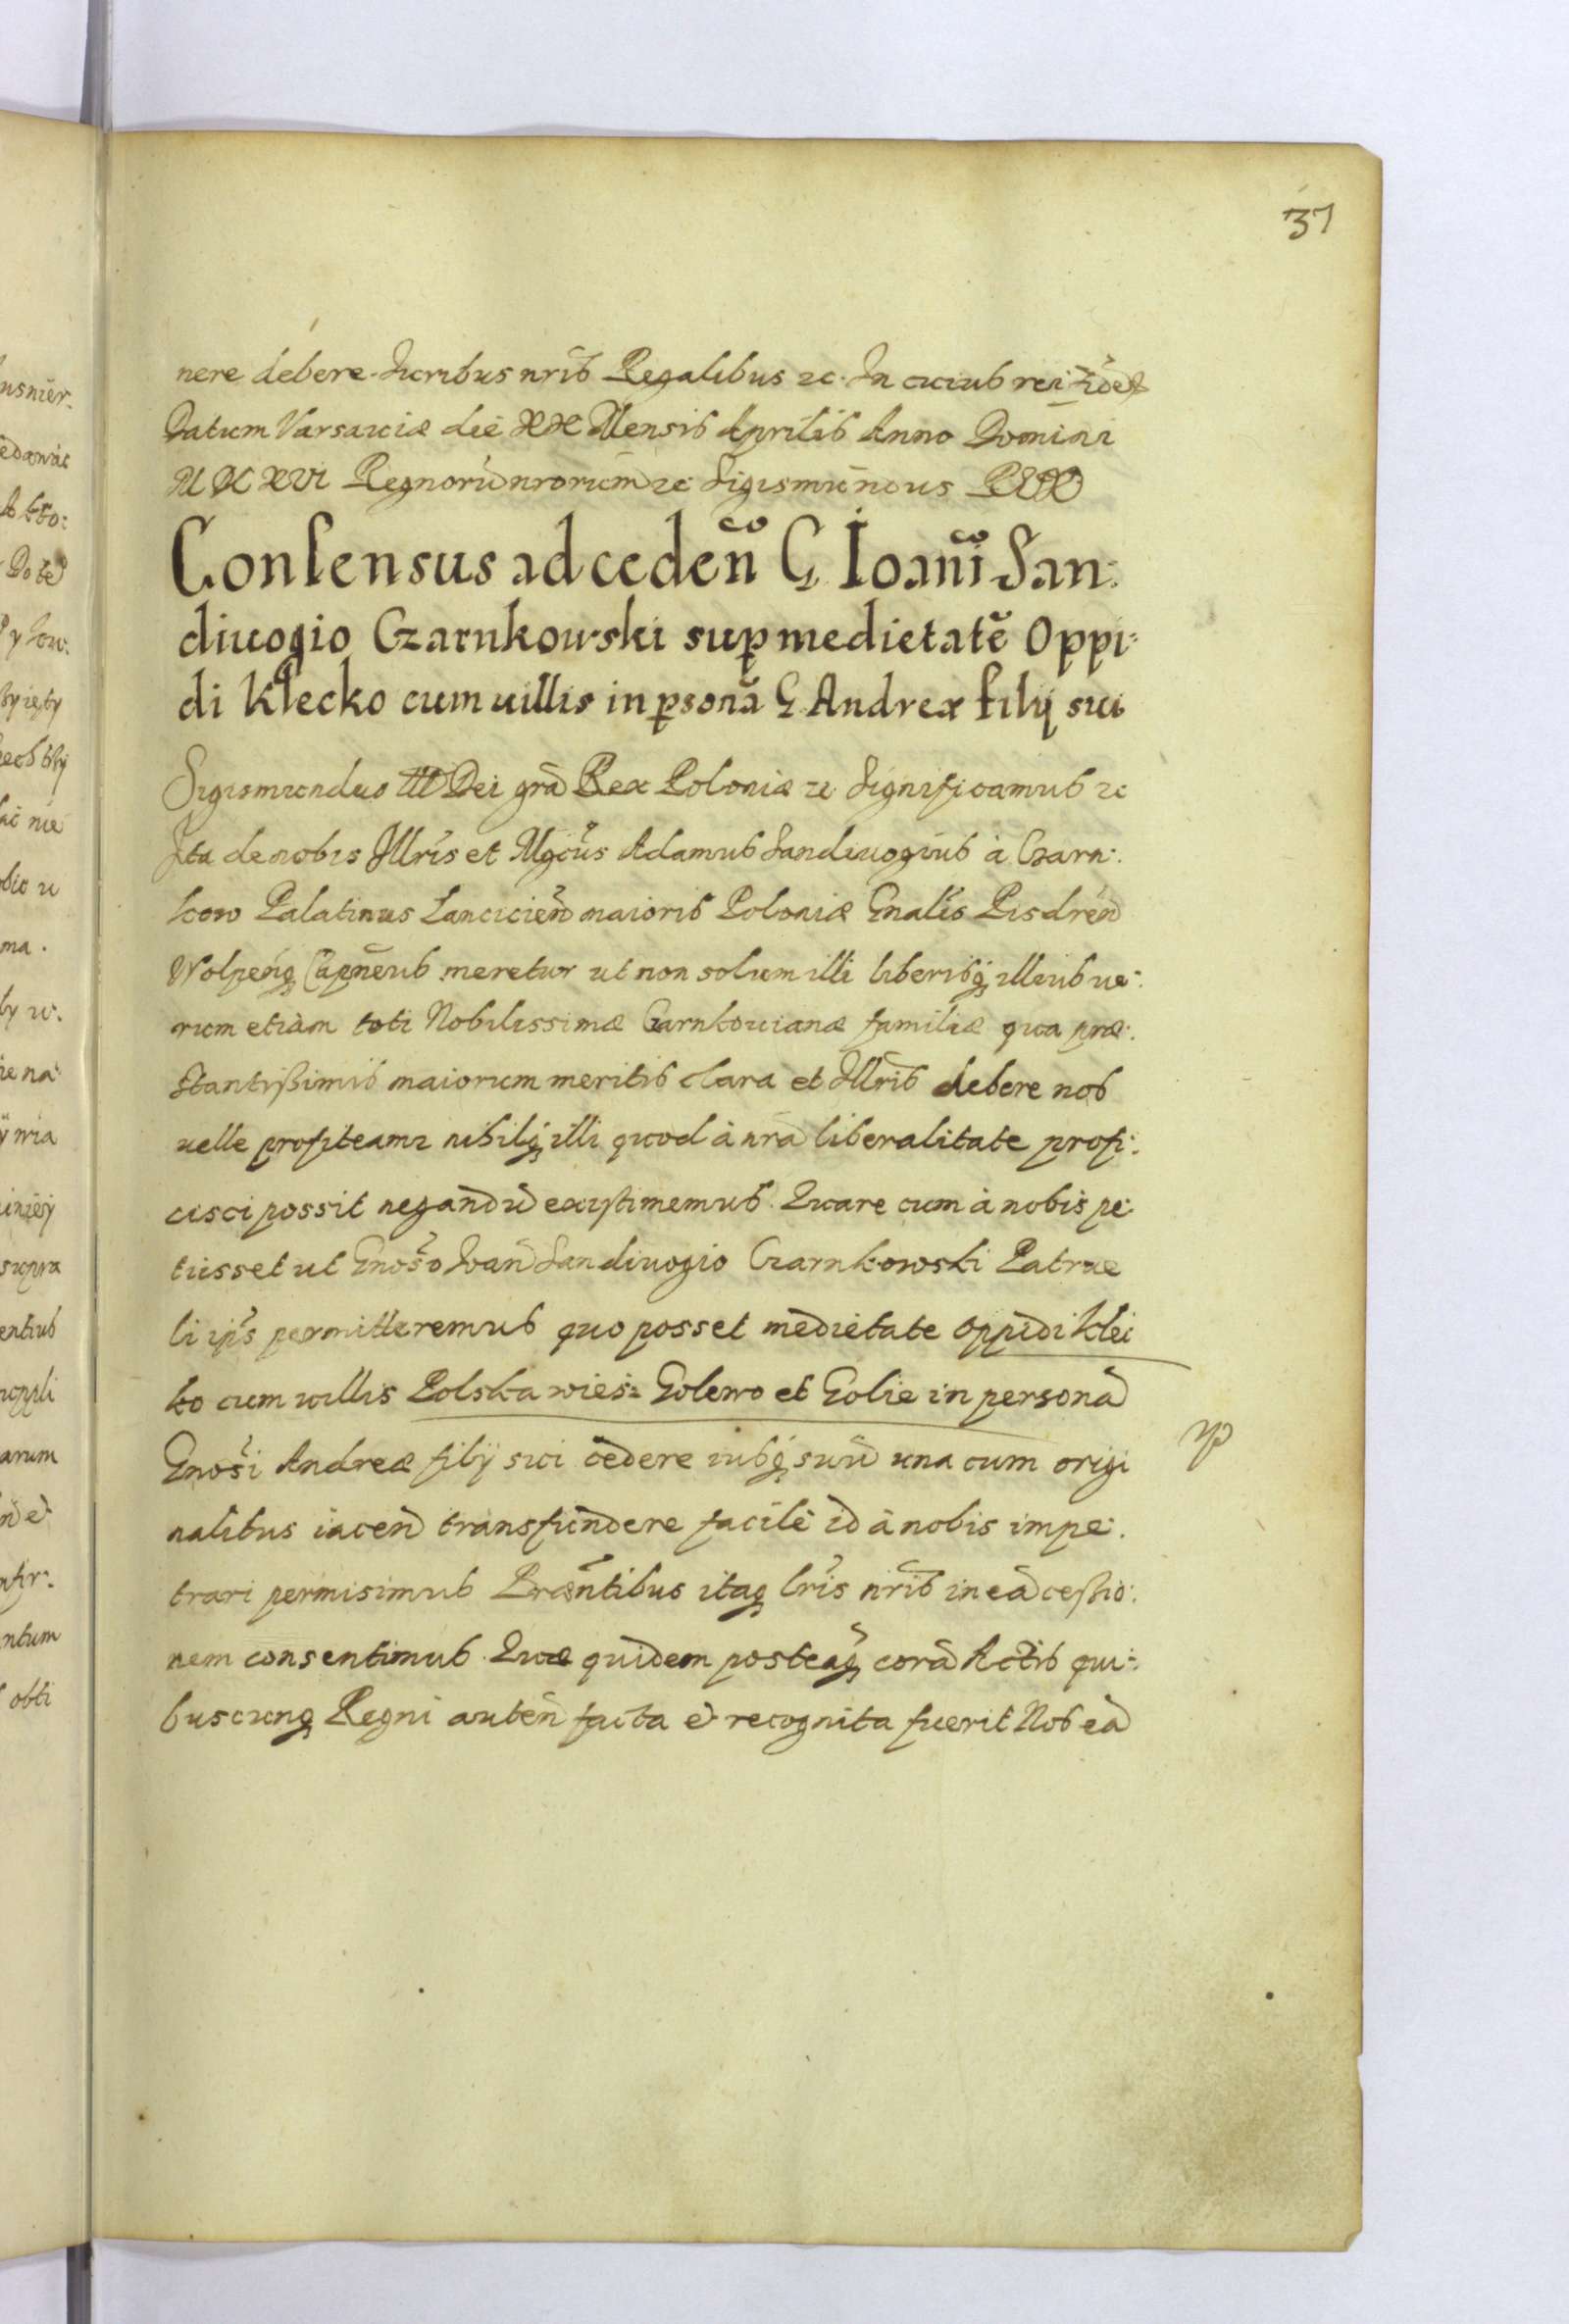 37
nere debere. Iuribus nris Regalibus zc. In cuius rei fidē
Datum Varsauiæ die XX Mensis Aprilis Anno Domini
MDCXVI Regnorū nrorum zc Sigismundus REX
Consensus ad ceden̄ G Ioan̄i San:
diuogio Czarnkowski sup medietatē Oppi:
di Klecko cum uillis in psonā G Andreæ filij sui
Sigismundus III Dei grā Rex Poloniæ zc Significamus zc
Ita de nobis Illris et Mgcus Adamus Sandiuogius à Czarn:
kow Palatinus Lanciciēn maioris Poloniæ Gnalis Pisdrēn
Wolpenq Capneus meretur ut non solum illi liberisq illius ue:
rum etiam toti Nobilissimæ Czarnkouianæ familiæ qua præ:
stantissimis maiorum meritis clara et Illris debere nos
uelle profiteamr nihilq illi quod à nrā liberalitate profi:
cisci possit negandū existimemus. Quare cum à nobis pe:
tiisset ut Gnoso Ioan Sandiuogio Czarnkowski Patrue
li ips permitteremus quo posset medietate oppidi Klei
ko cum uillis Polska wies: Golewo et Golie in personā
Gnosi Andreæ filij sui cedere iusq suū una cum origi
nalibus iacen transfundere facilè id à nobis impe:
trari permisimus Præntibus itaq lris nris in eā cessio:
nem consentimus. Quæ quidem posteaq corā Actis qui:
buscunq Regni autēn facta et recognita fuerit Nos eā